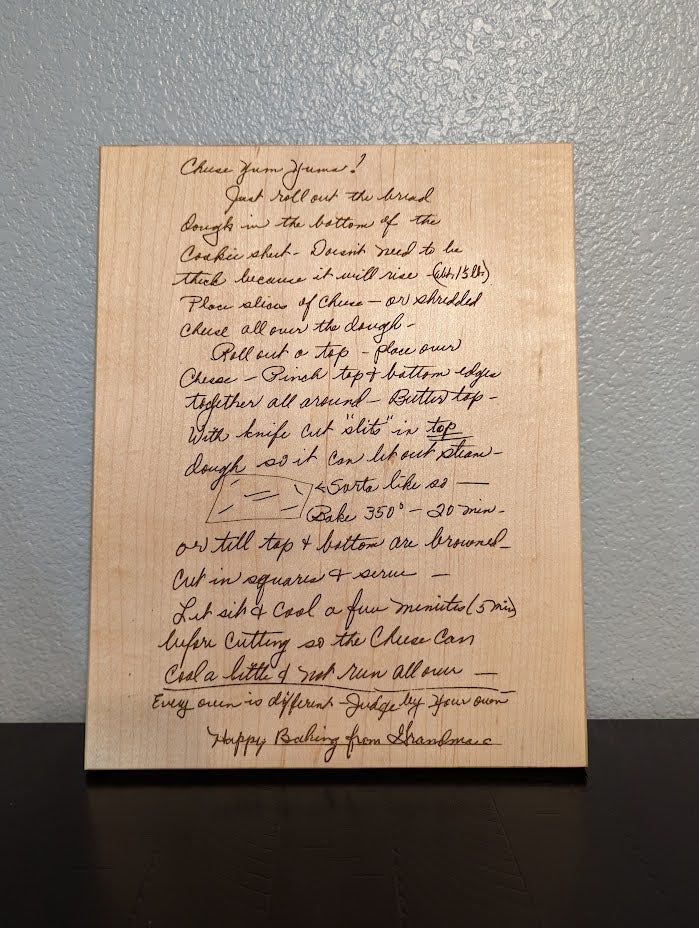 Cheese Yum Yums!
Just roll out the bread
dough in the bottom of the
Cookie sheet - Doesn't need to be
thick because it will rise - (abt. 1½ lb)
Place slices of cheese - or shredded
cheese all over the dough -
Roll out a top - place over
Cheese - Pinch top & bottom edges
together all around - Butter top -
With knife cut "slits" in top
dough so it can let out steam -
← Sorta like so -
Bake 350° - 20 min -
or till top & bottom are browned -
Cut in squares & serve -
Let sit & cool a few meniutes (5 min)
before cutting so the Cheese can
Cool a little & not run all over -
Every oven is different - Judge by your own
Happy Baking from Grandma